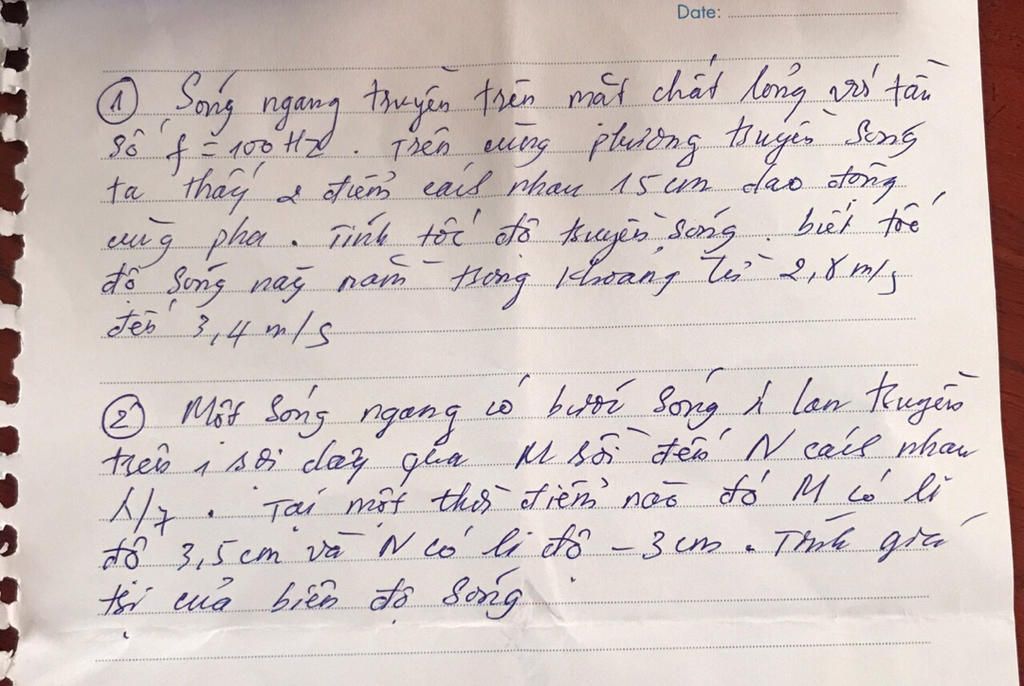 Date:
① Sóng ngang truyền trên mặt chất lỏng với tần
số f = 100 Hz. Trên cùng phương truyền sóng
ta thấy 2 điểm cách nhau 15 cm dao động
cùng pha. Tính tốc độ truyền sóng. biết tốc
độ sóng này nằm trong khoảng từ 2,8 m/s
đến 3,4 m/s
② Một sóng ngang có bước sóng λ lan truyền
trên 1 sợi dây qua M rồi đến N cách nhau
λ/7. Tại một thời điểm nào đó M có li
độ 3,5 cm và N có li độ -3 cm. Tính giá
trị của biên độ sóng